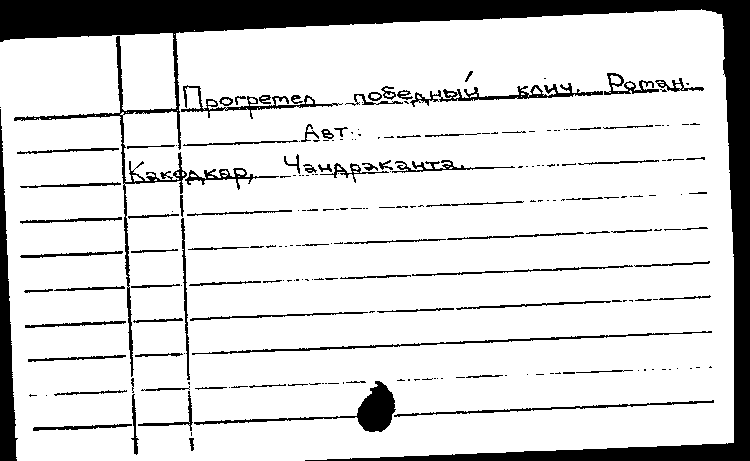 Прогремел победный клич. Роман.
Авт.:
Какодкар, Чандраканта.